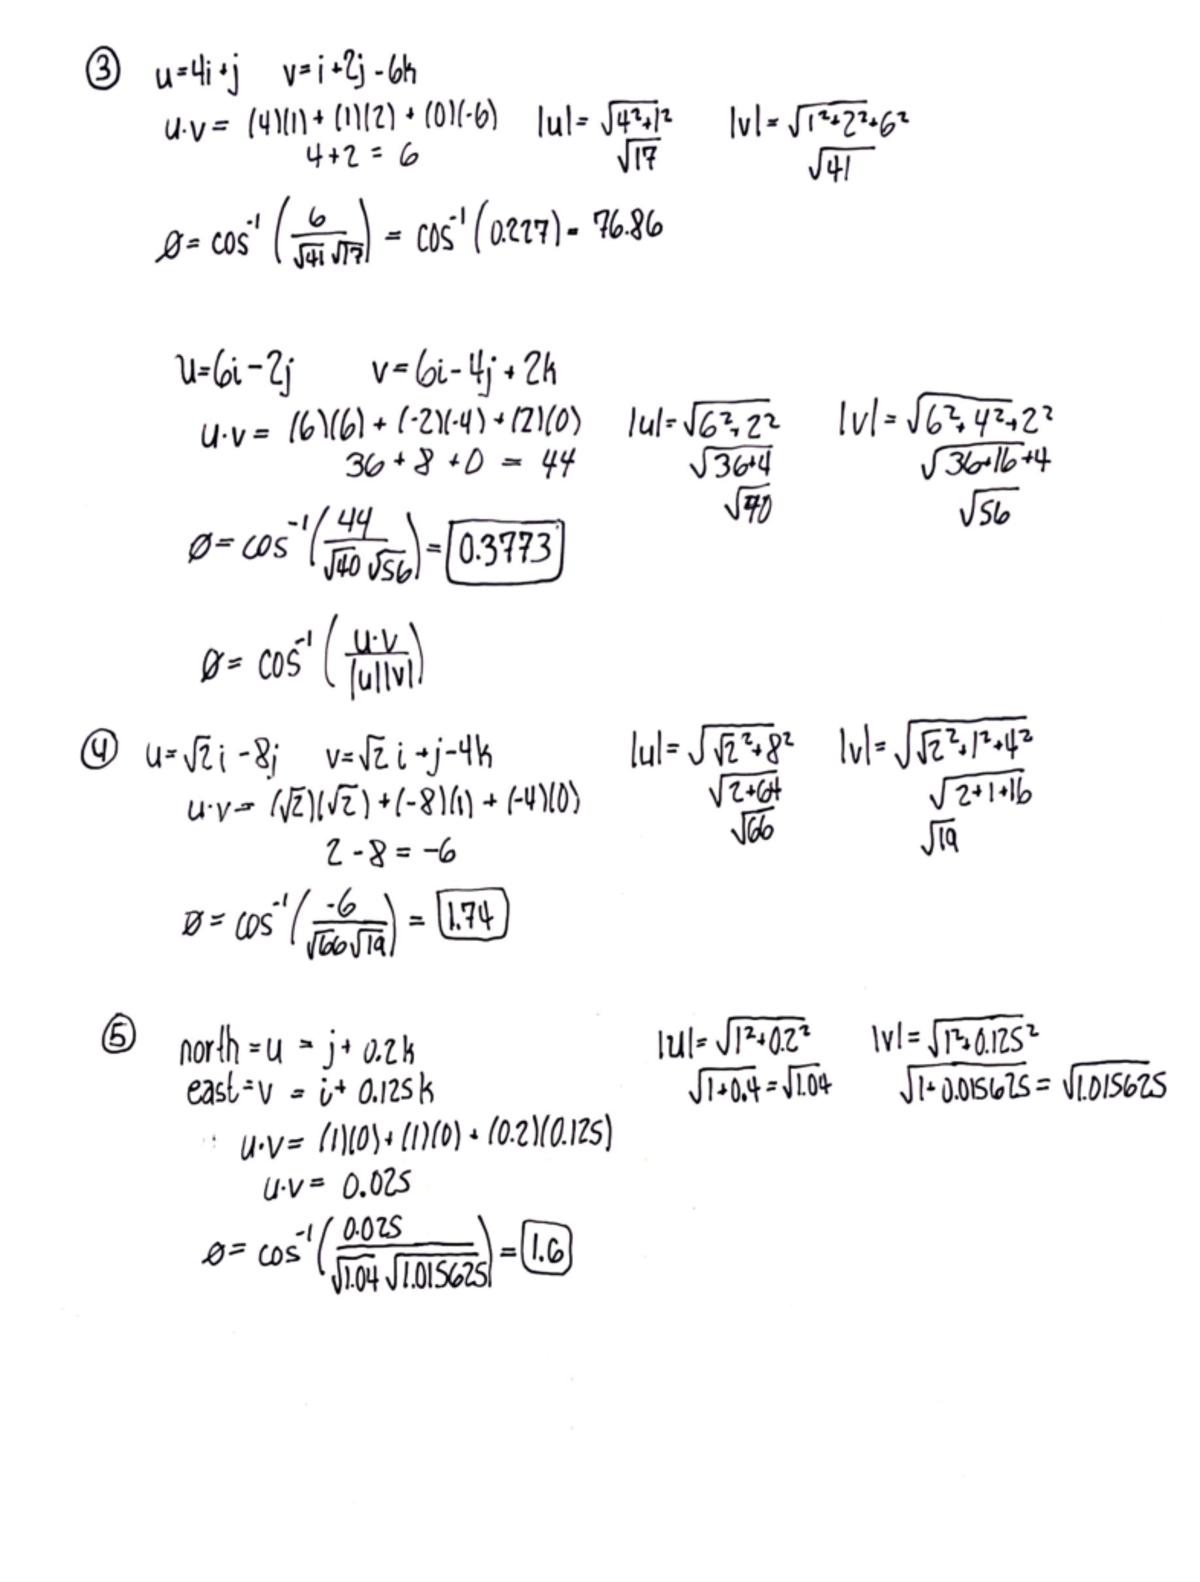 ③ u=4i+j v=i+2j-6k
u·v= (4)(1)+(1)(2)+(0)(-6) |u|=√4²+1² |v|=√1²+2²+6²
4+2 = 6 √17 √41
Ø= cos⁻¹(6/√41 √17) = cos⁻¹(0.227)= 76.86
u=6i-2j v=6i-4j+2k
u·v= (6)(6)+(-2)(-4)+(2)(0) |u|=√6²+2² |v|=√6²+4²+2²
36+8+0 = 44 √36+4 √36+16+4
√40 √56
Ø= cos⁻¹(44/√40 √56) = 0.3773
Ø= cos⁻¹(u·v/|u||v|)
④ u=√2i-8j v=√2i+j-4k |u|=√√2²+8² |v|=√√2²+1²+4²
u·v= (√2)(√2)+(-8)(1)+(-4)(0) √2+64 √2+1+16
2-8=-6 √66 √19
Ø= cos⁻¹(-6/√66√19) = 1.74
⑤ north=u = j+0.2k |u|=√1²+0.2² |v|=√1²+0.125²
east=v = i+0.125k √1+0.4=√1.04 √1+0.015625=√1.015625
u·v= (1)(0)+(1)(0)+(0.2)(0.125)
u·v= 0.025
Ø= cos⁻¹(0.025/√1.04 √1.015625) = 1.6